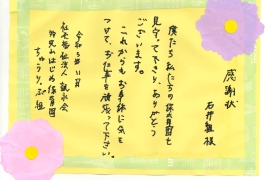 感謝状
石井組様
僕たち私たちの保育園を
見守って下さり、ありがとう
ございます。
これからもお身体に気を
つけて、お仕事を頑張って下さい。
令和5年11月
社会福祉法人
保育園
ちゅうりっぷ組